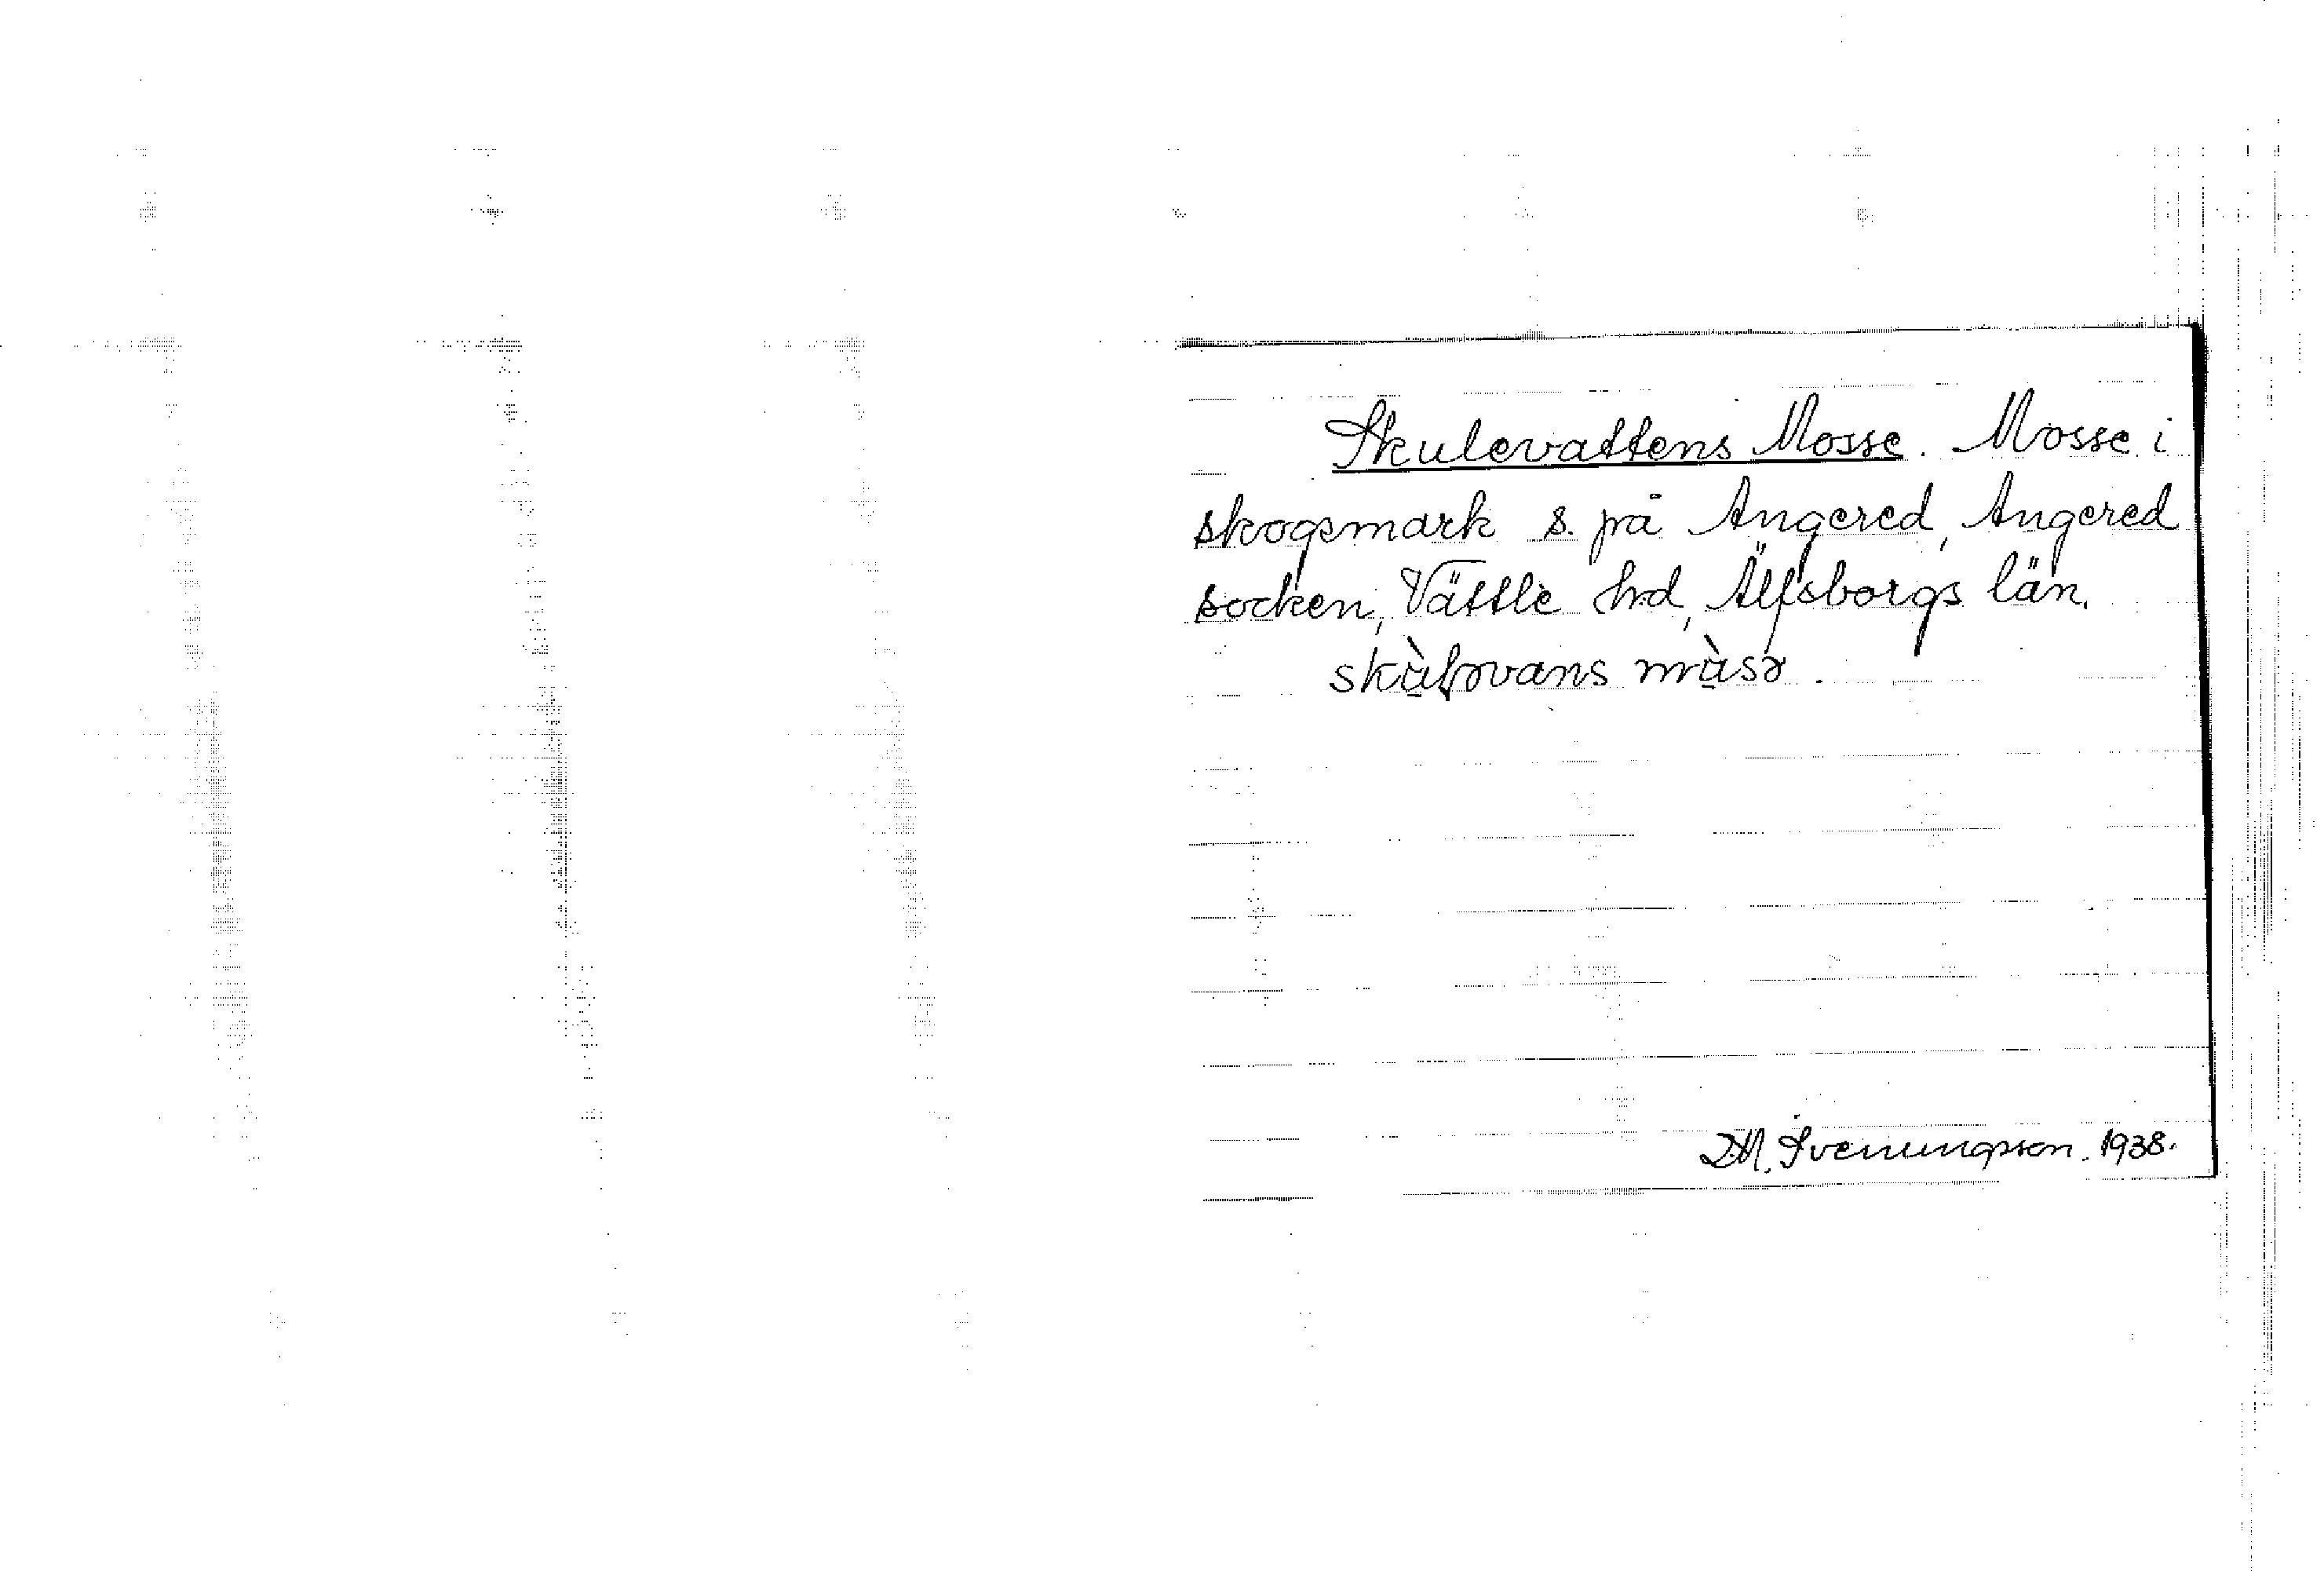 Skulevattens Mosse. Mosse i
skogsmark s. på Angered, Angered
socken, Vättle hd, Älfsborgs län.
D.M. Svenungsson. 1938.